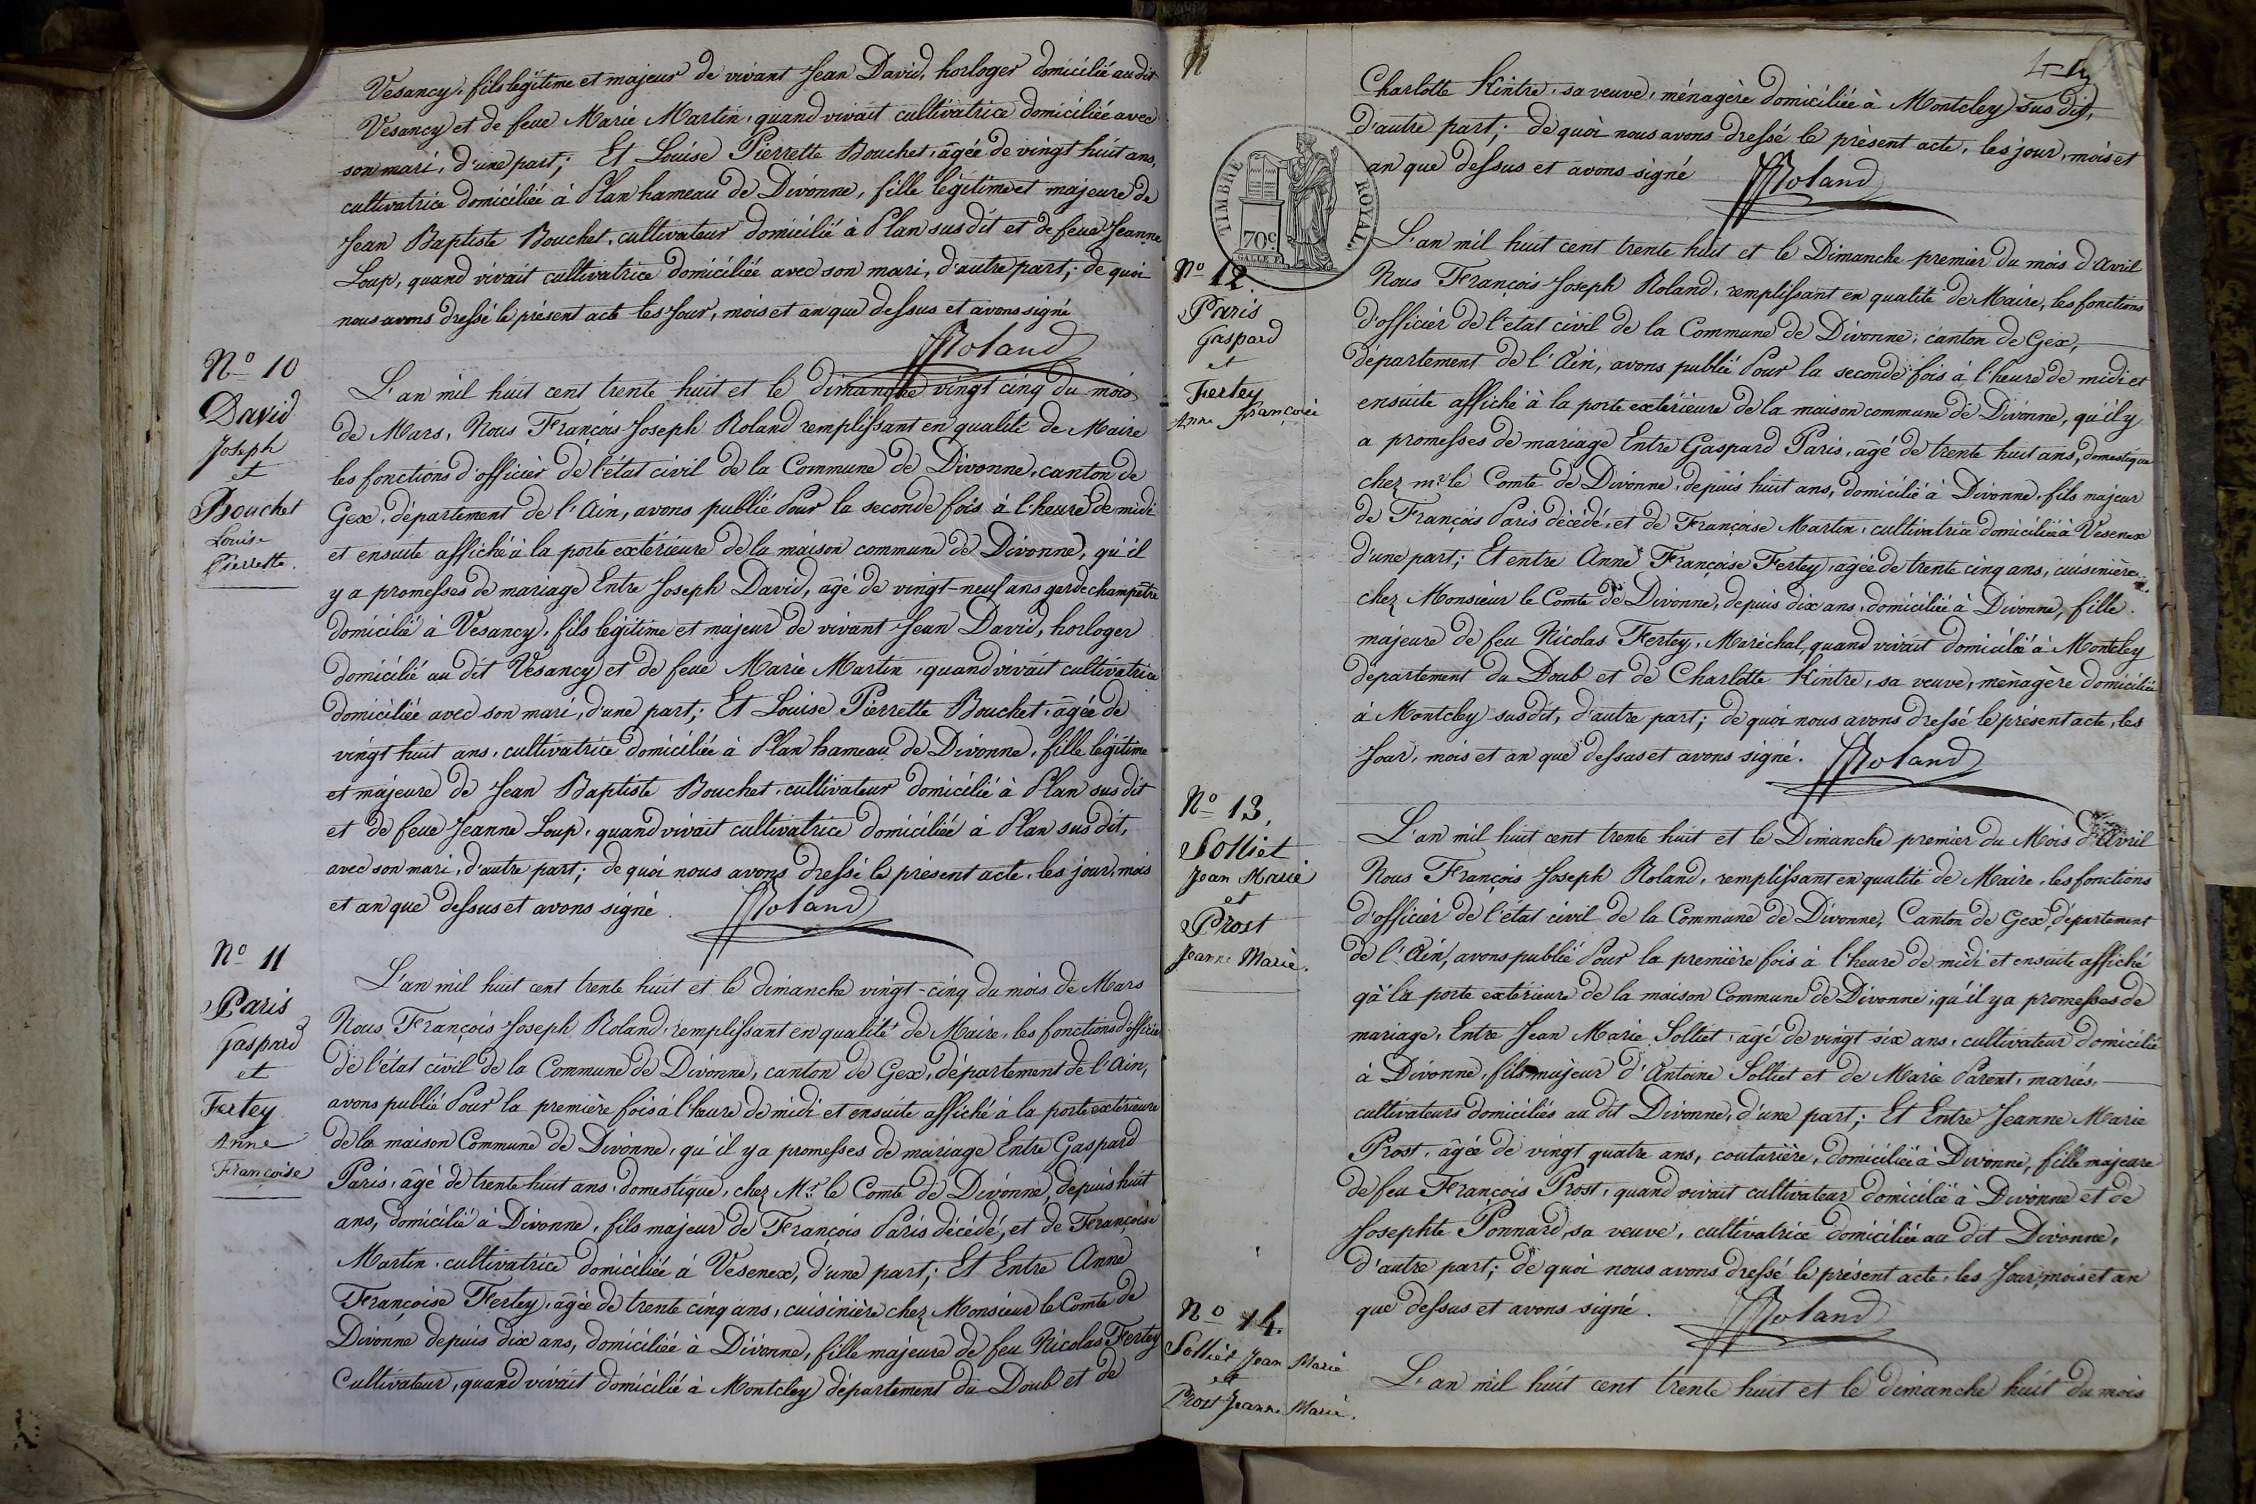 Vesancy, fils légitime et majeur de vivant Jean David, horloger domicilié au dit
Vesancy et de feue Marie Martin, quand vivait cultivatrice domiciliée avec
son mari, d'une part; Et Louise Pierrette Bouchet, agée de vingt huit ans,
cultivatrice domiciliée à Plan hameau de Divonne, fille légitime et majeure de
Jean Baptiste Bouchet, cultivateur domicilié à Plan susdit et de feue Jeanne
Loup, quand vivait cultivatrice domiciliée avec son mari, d'autre part; de quoi
nous avons dressé le présent acte les Jour, mois et an que dessus et avons signé
Roland
No 10
David
Joseph
et
Bouchet
Louise
Pierrette.
L'an mil huit cent trente huit et le dimanche vingt cinq du mois
de Mars, Nous François Joseph Roland remplissant en qualité de Maire
les fonctions d'officier de l'état civil de la Commune de Divonne, canton de
Gex, département de l'Ain, avons publié Pour la seconde fois à l'heure de midi
et ensuite affiché à la porte extérieure de la maison commune de Divonne, qu'il
y a promesses de mariage Entre Joseph David, agé de vingt-neuf ans garde champêtre
domicilié à Vesancy, fils légitime et majeur de vivant Jean David, horloger
domicilié au dit Vesancy et de feue Marie Martin, quand vivait cultivatrice
domiciliée avec son mari, d'une part; Et Louise Pierrette Bouchet, agée de
vingt huit ans, cultivatrice domiciliée à Plan hameau de Divonne, fille légitime
et majeure de Jean Baptiste Bouchet, cultivateur domicilié à Plan sus dit
et de feue Jeanne Loup, quand vivait cultivatrice domiciliée à Plan sus dit,
avec son mari, d'autre part; de quoi nous avons dressé le présent acte, les jour, mois
et an que dessus et avons signé. Roland
No 11
Paris
Gaspard
et
Fertey
Anne
Françoise
L'an mil huit cent trente huit et le dimanche vingt-cinq du mois de Mars
Nous François Joseph Roland, remplissant en qualité de Maire, les fonctions d'officier
de l'état civil de la Commune de Divonne, canton de Gex, département de l'Ain,
avons publié Pour la première fois à l'heure de midi et ensuite affiché à la porte extérieure
de la maison Commune de Divonne, qu'il y a promesses de mariage Entre Gaspard
Paris, agé de trente huit ans, domestique, chez Mr. le Comte de Divonne, depuis huit
ans, domicilié à Divonne, fils majeur de François Paris décédé, et de Françoise
Martin, cultivatrice domiciliée à Vesenex, d'une part; Et Entre Anne
Françoise Fertey, agée de trente cinq ans, cuisinière chez Monsieur le Comte de
Divonne depuis dix ans, domiciliée à Divonne, fille majeure de feu Nicolas Fertey
Cultivateur, quand vivait domicilié à Montcley département du Doub et de
Charlotte Kintre, sa veuve, ménagère domiciliée à Montcley sus dit,
d'autre part; de quoi nous avons dressé le présent acte, les jour, mois et
an que dessus et avons signé Roland
TIMBRE ROYAL
70c
No 12.
Paris
Gaspard
et
Fertey
Anne Françoise
L'an mil huit cent trente huit et le Dimanche premier du mois d'Avril
Nous François Joseph Roland, remplissant en qualité de Maire, les fonctions
d'officier de l'état civil de la Commune de Divonne, canton de Gex,
département de l'Ain, avons publié Pour la seconde fois à l'heure de midi et
ensuite affiché à la porte extérieure de la maison commune de Divonne, qu'il y
a promesses de mariage Entre Gaspard Paris, agé de trente huit ans, domestique
chez mr. le Comte de Divonne, depuis huit ans, domicilié à Divonne, fils majeur
de François Paris décédé, et de Françoise Martin, cultivatrice domiciliée à Vesenex
d'une part; Et entre Anne Françoise Fertey, agée de trente cinq ans, cuisinière
chez Monsieur le Comte de Divonne, depuis dix ans, domiciliée à Divonne, fille
majeure de feu Nicolas Fertey, Maréchal, quand vivait domicilié à Montcley
département du Doub et de Charlotte Kintre, sa veuve, ménagère domiciliée
à Montcley susdit, d'autre part; de quoi nous avons dressé le présent acte, les
Jour, mois et an que dessus et avons signé. Roland
No 13.
Solliet
Jean Marie
et
Prost
Jeanne Marie.
L'an mil huit cent trente huit et le Dimanche premier du Mois d'Avril
Nous François Joseph Roland, remplissant en qualité de Maire, les fonctions
d'officier de l'état civil de la Commune de Divonne, Canton de Gex, département
de l'Ain, avons publié Pour la première fois à l'heure de midi et ensuite affiché
qà la porte extérieure de la maison Commune de Divonne, qu'il y a promesses de
mariage, Entre Jean Marie Solliet, agé de vingt six ans, cultivateur domicilié
à Divonne, fils majeur d'Antoine Solliet et de Marie Parent, mariés,
cultivateurs domiciliés au dit Divonne, d'une part; Et Entre Jeanne Marie
Prost, agée de vingt quatre ans, couturière, domiciliée à Divonne, fille majeure
de feu François Prost, quand vivait cultivateur domicilié à Divonne et de
Josephte Ponnard, sa veuve, cultivatrice domiciliée au dit Divonne,
d'autre part; de quoi nous avons dressé le présent acte, les Jour, mois et an
que dessus et avons signé. Roland
No 14.
Solliet Jean Marie
et
Prost Jeanne Marie.
L'an mil huit cent trente huit et le dimanche huit du mois